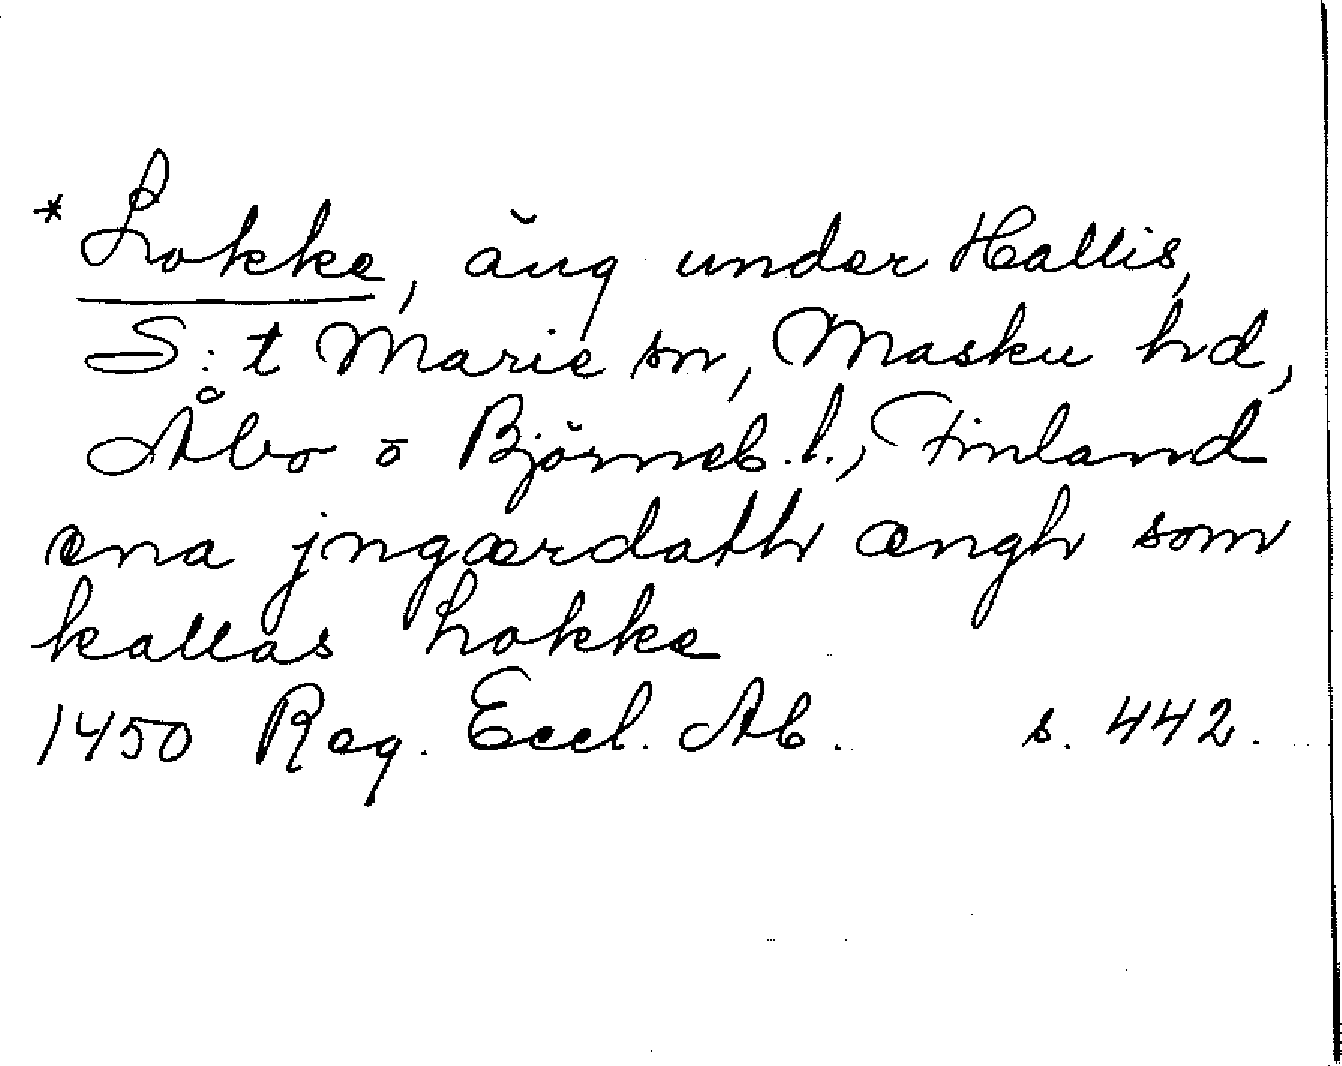 * Lokke, äng under Hallis,
S:t Marie sn, Masku hd,
Åbo o Björneb. l., Finland
ena jngærdath ængh som
kallas lokke
1450 Reg. Eccl. Ab. s. 442.